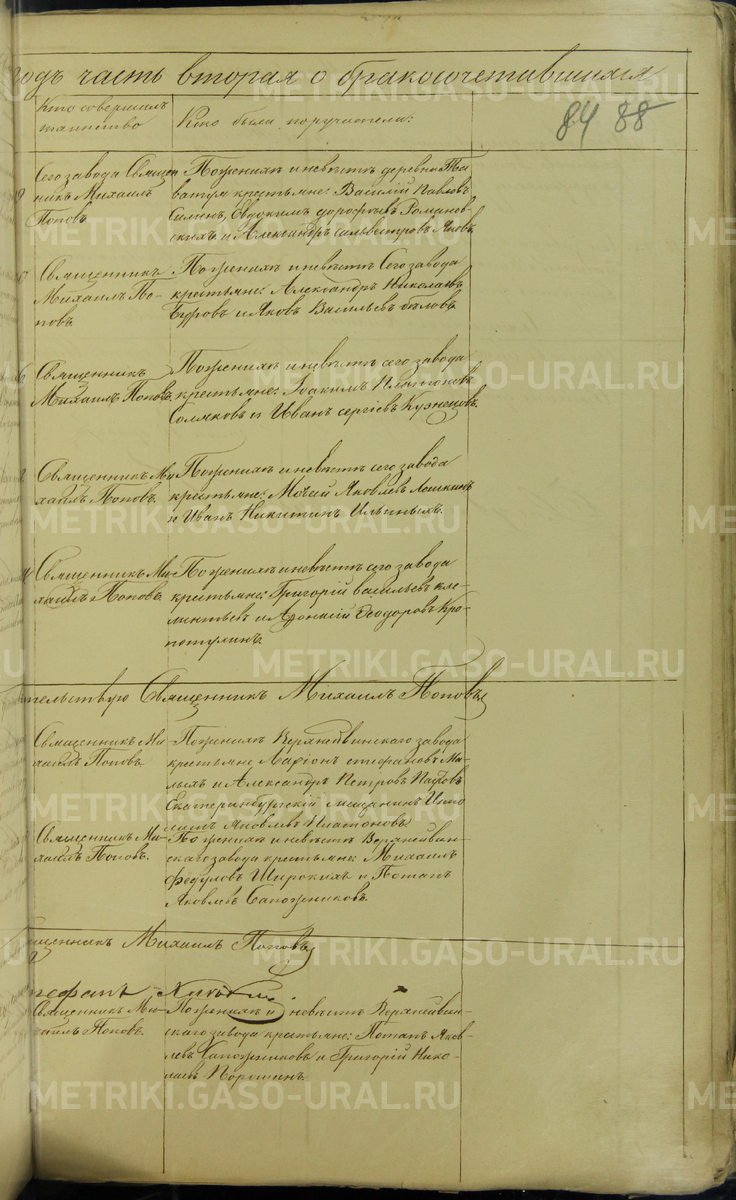 годъ часть вторая о бракосочетавшихся
Кто совершалъ
таинство
Кто были поручатели:
84 88
Сего завода Священ
никъ Михаилъ
Поповъ
По женихѣ и невѣстѣ деревни
ватум крестьяне: Василій Павловъ
Силинъ, Евдокимъ дорофеевъ Романов-
скихъ и Александръ сильвестровъ Яковл.
Священникъ
Михаилъ По-
повъ
По женихѣ и невѣстѣ Сего завода
крестьяне: Александръ Николаевъ
Буровъ и Яковъ Васильевъ бѣловъ
Священникъ
Михаилъ Поповъ.
По женихѣ и невѣстѣ сего завода
крестьяне: Іоакимъ Платоновъ
Соляковъ и Иванъ сергіевъ Кузнецовъ.
Священникъ Ми
хаилъ Поповъ.
По женихѣ и невѣстѣ сего завода
крестьяне: Мокій Яковлевъ Лошкинъ
и Иванъ Никитинъ Ильиныхъ.
Священникъ Ми-
хаилъ Поповъ.
По женихѣ и невѣстѣ сего завода
крестьяне: Григорій васильевъ кле-
ментьевъ и Афонасій Ѳеодоровъ Кро-
потулинъ.
тельствую Священникъ Михаилъ Поповъ
Священникъ Ми-
хаилъ Поповъ.
По женихѣ Верхнейвинскаго завода
крестьяне Ларіонъ стефановъ Ма-
лыхъ и Александръ Петровъ
Екатеринбургскій мещанинъ Иппо
литъ Яковлевъ Платоновъ
Священникъ Ми-
хаилъ Поповъ.
По женихѣ и невѣстѣ Верхнейвин-
скаго завода крестьяне: Михаилъ
Федуловъ Широкихъ и Потапъ
Яковлевъ Сапожниковъ.
щенникъ Михаилъ Поповъ
Священникъ Ми-
хаилъ Поповъ.
По женихѣ и невѣстѣ Верхнейвин-
скаго завода крестьяне: Потапъ Яков-
левъ Сапожниковъ и Григорій Нико-
лаевъ Поршинъ.
METRIKI.GASO-URAL.RU